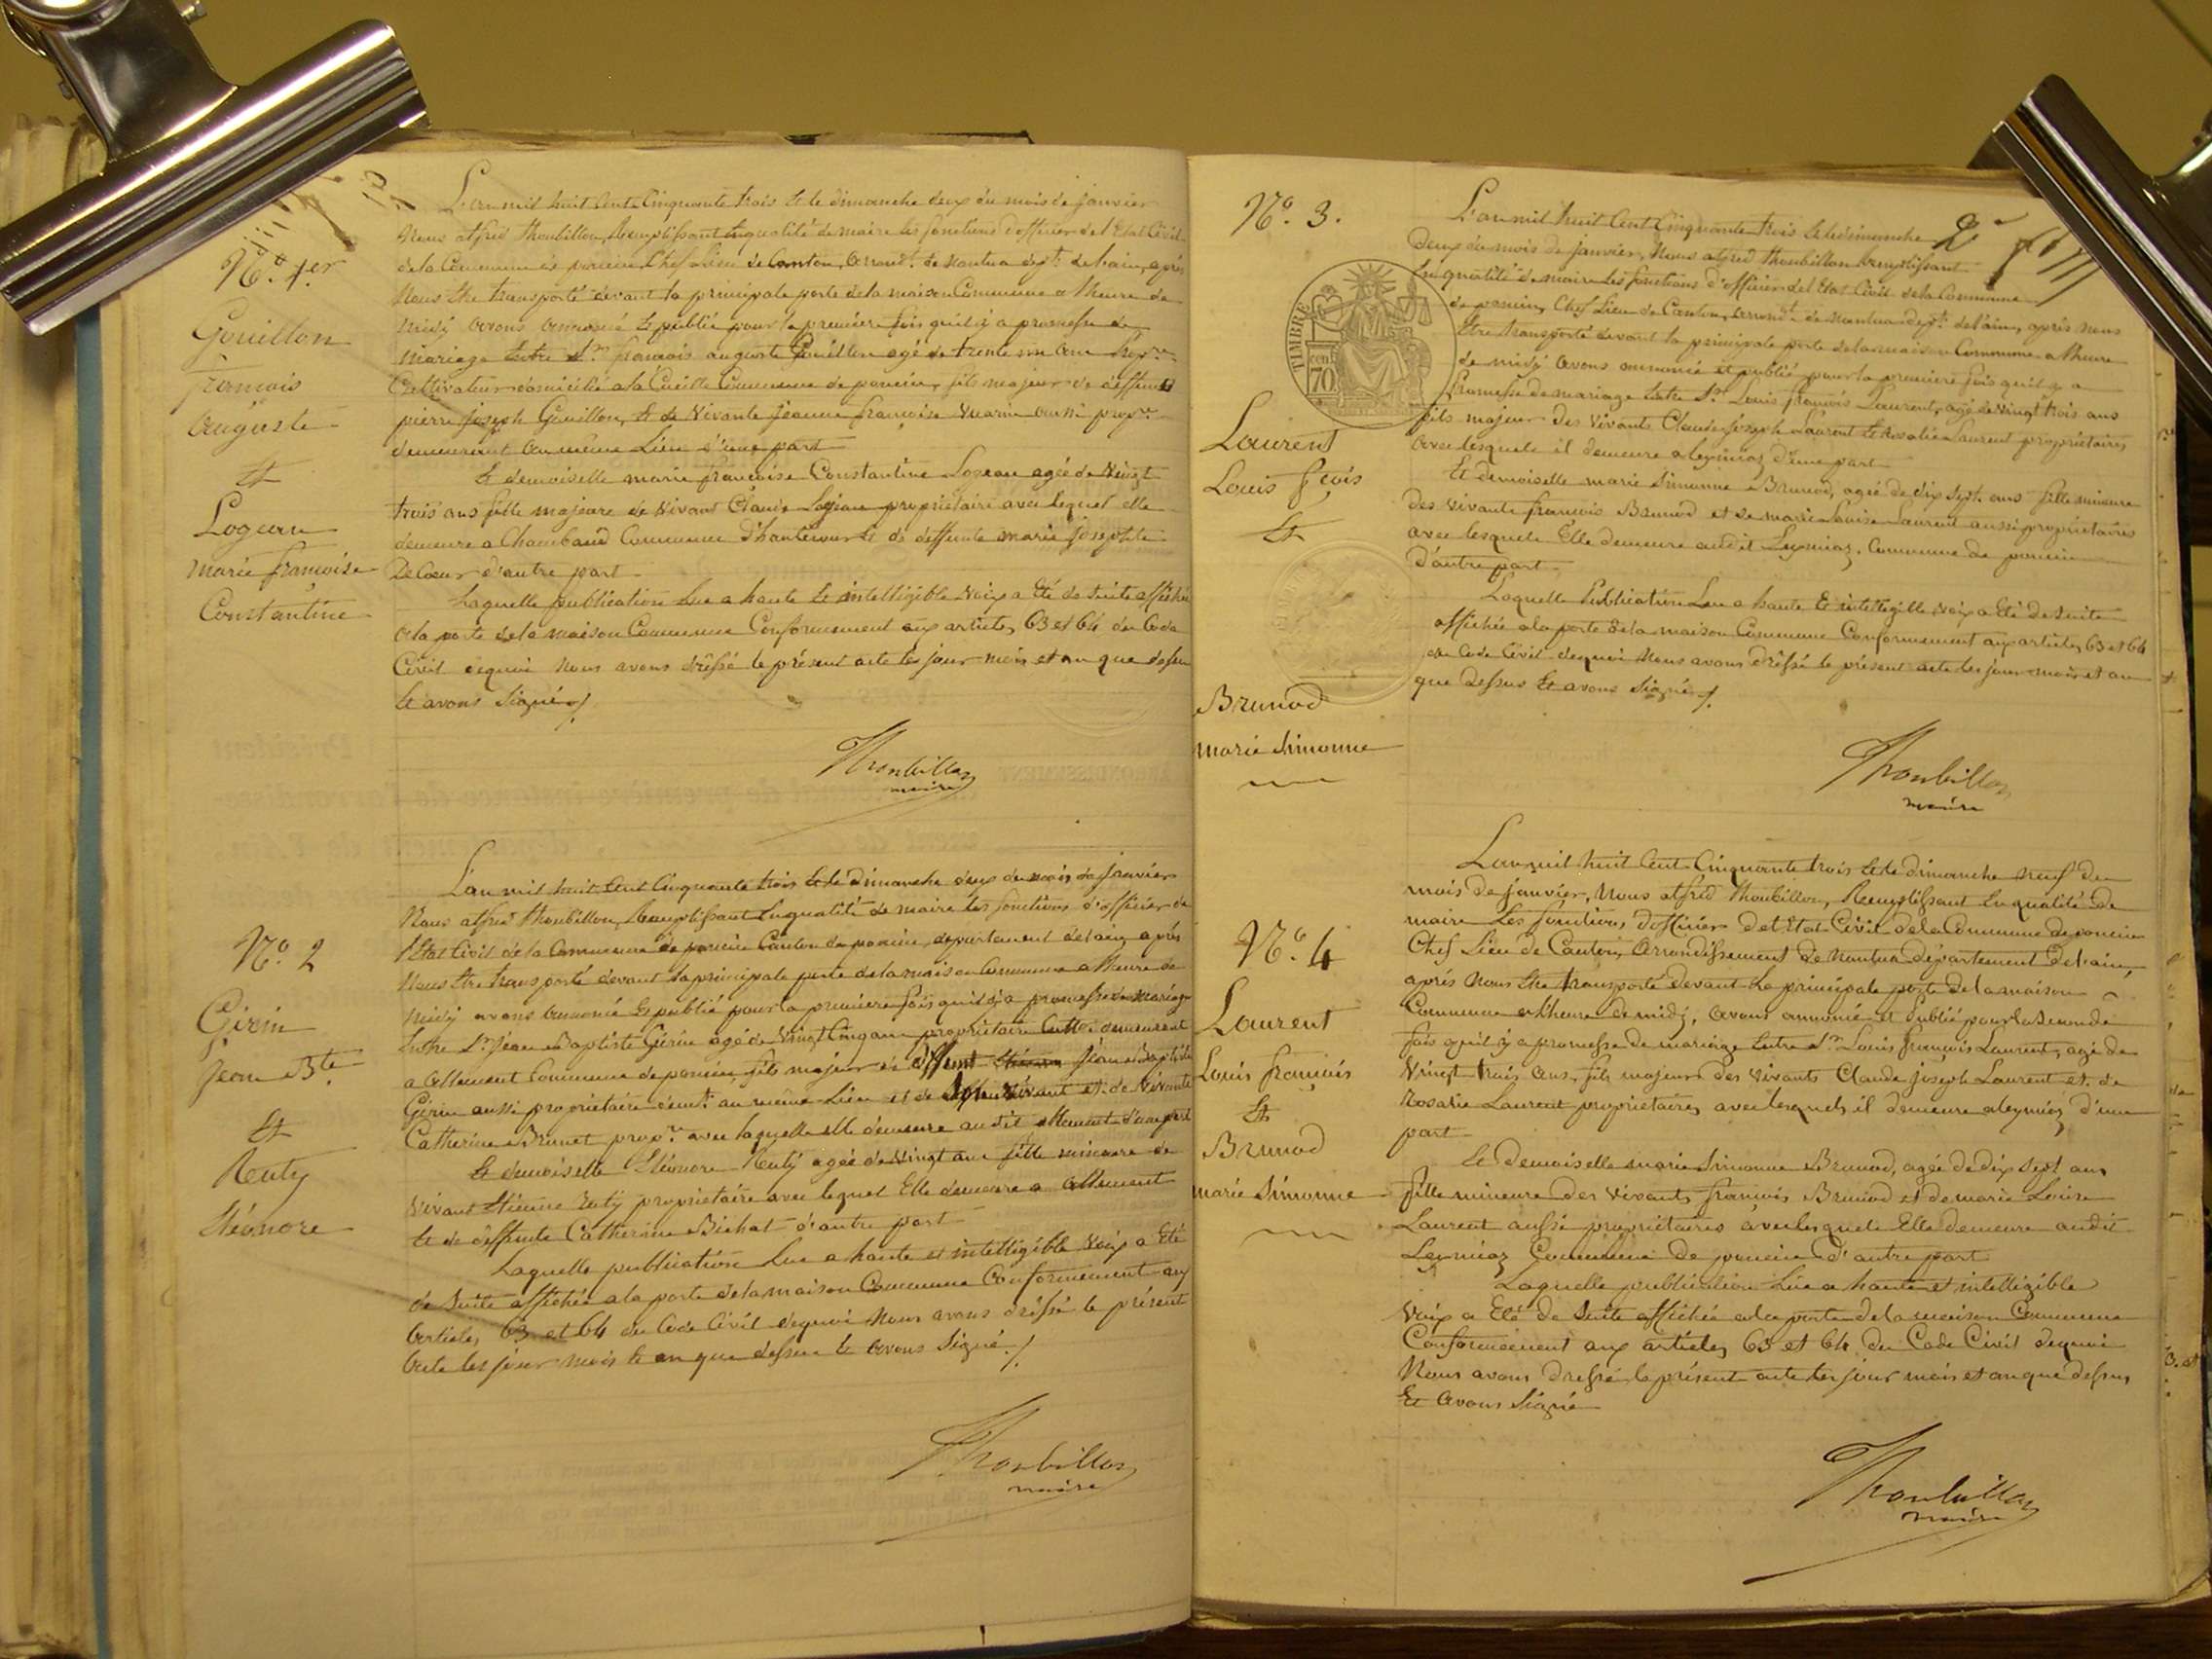 1
N.º 1.er
Gouillon
françois
auguste
Et
Logean
marie françoise
Constantine
L'an mil huit Cent Cinquante trois Et le dimanche deux du mois de janvier
Nous alfred Thoubillon, Remplissant En qualité de maire les fonctions d'officier de l'Etat Civil
de la Commune de poncin, Chef Lieu de Canton, arrond.t de Nantua dep.t de l'ain, après
Nous Etre transporté devant la principale porte de la maison Commune a l'heure de
midi avons annoncé Et publié pour la première fois qu'il y a promesse de
mariage Entre S.r françois auguste Gouillon agé de trente un ans prop.re
Cultivateur domicilié a la Cueille Commune de poncin, fils majeur de deffunt
pierre joseph Gouillon, Et de Vivante jeanne françoise Vuarin aussi prop.re
demeurant au même Lieu d'une part
Et demoiselle marie françoise Constantine Logean agée de Vingt
trois ans fille majeure de Vivant Claude Logean propriétaire avec lequel elle
demeure a Chambaud Commune d'hautecourt Et de deffunte marie josephte
De Cœur d'autre part
Laquelle publication Lue a haute Et intelligible Voix a Eté de suite affichée
a la porte de la maison Commune Conformément aux articles 63 et 64 du Code
Civil dequoi Nous avons dréssé le présent acte les jour mois et an que dessus
Et avons Signé ./.
Thoubillon
maire
N.º 2
Girin
Jean B.te
Et
Ruty
Eléonore
L'an mil huit Cent Cinquante trois Et le Dimanche deux du mois de janvier
Nous alfred Thoubillon, Remplissant En qualité de maire les fonctions d'officier de
l'Etat Civil de la Commune de poncin Canton de poncin, département de l'ain, après
Nous Etre transporté devant la principale porte de la maison Commune a l'heure de
midi avons annoncé Et publié pour la première fois qu'il y a promesse de mariage
Entre S.r Jean Baptiste Girin agé de Vingt Cinq ans propriétaire Cult.r demeurant
a allement Commune de poncin, fils majeur de deffunt Jean Baptiste
Girin aussi propriétaire dem.t au même Lieu et de Vivant et de Vivante
Catherine Brunet prop.re avec laquelle elle demeure au dit allement d'une part
Et demoiselle Eléonore Ruty agée de Vingt ans fille mineure de
Vivant Etienne Ruty propriétaire avec lequel Elle demeure a allement
Et de deffunte Catherine Bichat d'autre part
Laquelle publication Lue a haute et intelligible Voix a Eté
de Suite affichée a la porte de la maison Commune Conformément aux
articles 63 et 64 du Code Civil dequoi Nous avons dréssé le présent
acte les jour mois Et an que dessus Et avons Signé ./.
Thoubillon
maire
2
N.º 3.
TIMBRE
cent
70
Laurent
Louis f.çois
Et
Brunod
marie Simonne
L'an mil huit Cent Cinquante trois Et le dimanche
Deux du mois de janvier, Nous alfred Thoubillon Remplissant
En qualité de maire Les fonctions d'officier de l'Etat Civil de la Commune
de poncin, Chef Lieu de Canton, arrond.t de Nantua dep.t de l'ain, après nous
Etre transporté devant la principale porte de la maison Commune a l'heure
de midi avons annoncé et publié pour la première fois qu'il y a
promesse de mariage Entre S.r Louis françois Laurent, agé de Vingt trois ans
fils majeur des Vivants Claude joseph Laurent Et Rosalie Laurent propriétaires,
avec lesquels il demeure a leymiaz d'une part
Et demoiselle marie Simonne Brunod, agée de dix Sept ans fille mineure
des vivants françois Brunod et de marie Louise Laurent aussi propriétaires
avec lesquels Elle demeure audit Leymiaz, Commune de poncin
d'autre part
Laquelle Publication Lue a haute Et intelligible voix a Eté de Suite
affichée a la porte de la maison Commune Conformément aux articles 63 et 64
du Code Civil dequoi Nous avons dréssé le présent acte les jour mois et an
que Dessus Et avons Signé ./.
Thoubillon
maire
N.º 4
Laurent
Louis françois
Et
Brunod
marie Simonne
L'an mil huit Cent Cinquante trois Et le dimanche neuf du
mois de janvier, Nous alfred Thoubillon, Remplissant En qualité de
maire Les fonctions d'officier de l'Etat Civil de la Commune de poncin
Chef Lieu de Canton, arrondissement de Nantua département de l'ain,
après Nous Etre transporté devant La principale porte de la maison
Commune a l'heure de midi, avons annoncé et Publié pour la Seconde
fois qu'il y a promesse de mariage Entre S.r Louis françois Laurent, agé de
Vingt trois ans, fils majeur des vivants Claude joseph Laurent et de
Rosalie Laurent propriétaires, avec lesquels il demeure a leymiaz d'une
part
Et Demoiselle marie Simonne Brunod, agée de dix Sept ans
fille mineure des Vivants françois Brunod et de marie Louise
Laurent aussi propriétaires avec lesquels Elle demeure audit
Leymiaz Commune de poncin d'autre part
Laquelle publication Lue a haute et intelligible
Voix a Eté de Suite affichée a la porte de la maison Commune
Conformément aux articles 63 et 64 du Code Civil dequoi
Nous avons Dressé le présent acte les jour mois et an que dessus
Et avons Signé
Thoubillon
maire